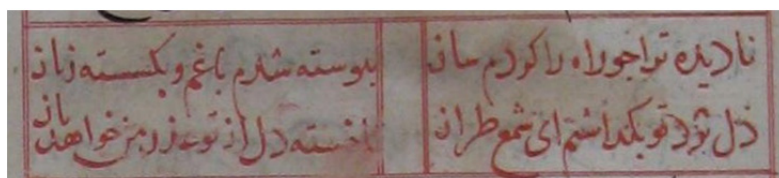 نادیده ترا چو راه را کردم ساز
پیوسته شدم باغم و بگسسته زناز
دل نزد تو بگذاشتم ای شمع طراز
تا خسته دل از تو عذر من خواهد باز